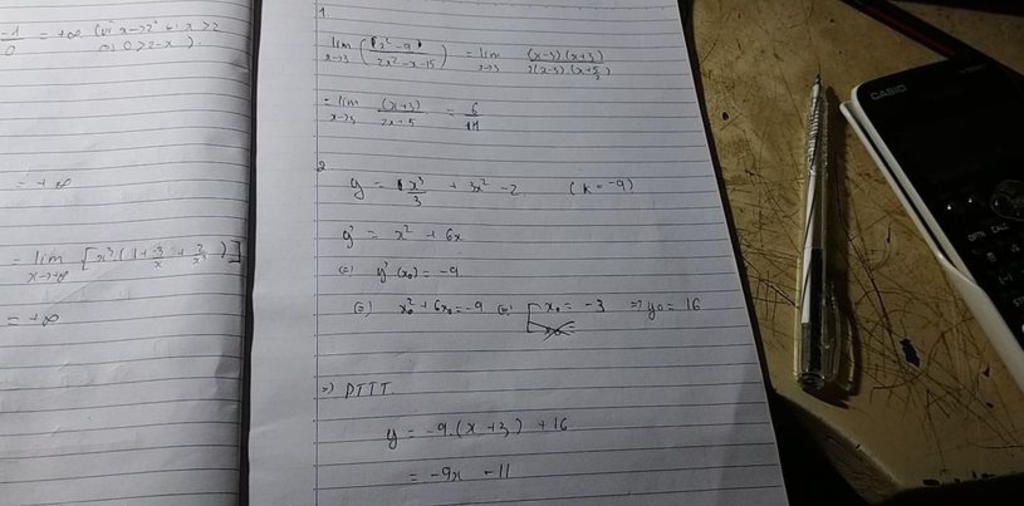 -1/0 = +∞ (vì x->2⁺ <=> x>2
<=> 0>2-x).
= +∞
= lim x->+∞ [x³(1 + -3/x + 2/x³)]
= +∞
1.
lim x->3 (x²-9 / 2x²-x-15) = lim x->3 (x-3)(x+3) / 2(x-3).(x+5/2)
= lim x->3 (x+3) / 2x+5 = 6/11
2
y = x³/3 + 3x² - 2 (k = -9)
y' = x² + 6x
<=> y'(x₀) = -9
<=> x₀² + 6x₀ = -9 <=> [x₀ = -3 => y₀ = 16
=> PTTT
y = -9.(x+3) + 16
= -9x - 11
CASIO
OPTN CALC